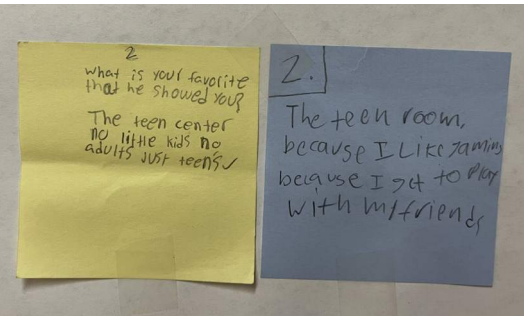 2
what is your favorite
that he showed you?
The teen center
no little kids no
adults just teens
2.
The teen room,
because I Like gaming
because I get to Play
with my friends